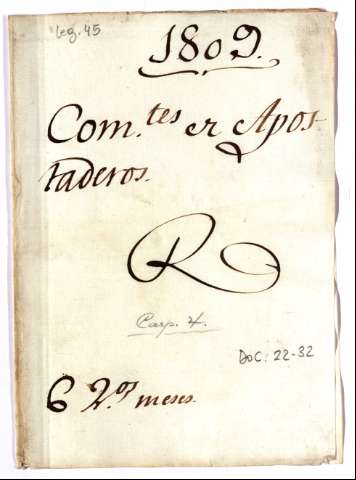 Leg. 45
1809.
Com.tes de Apos
taderos.
R
Carp. 4.
DOC: 22-32
6 2.os meses.